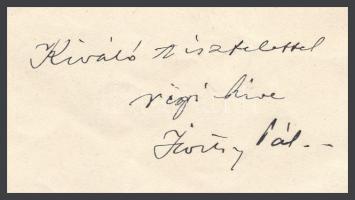 Kiváló tisztelettel
régi híve
Pál